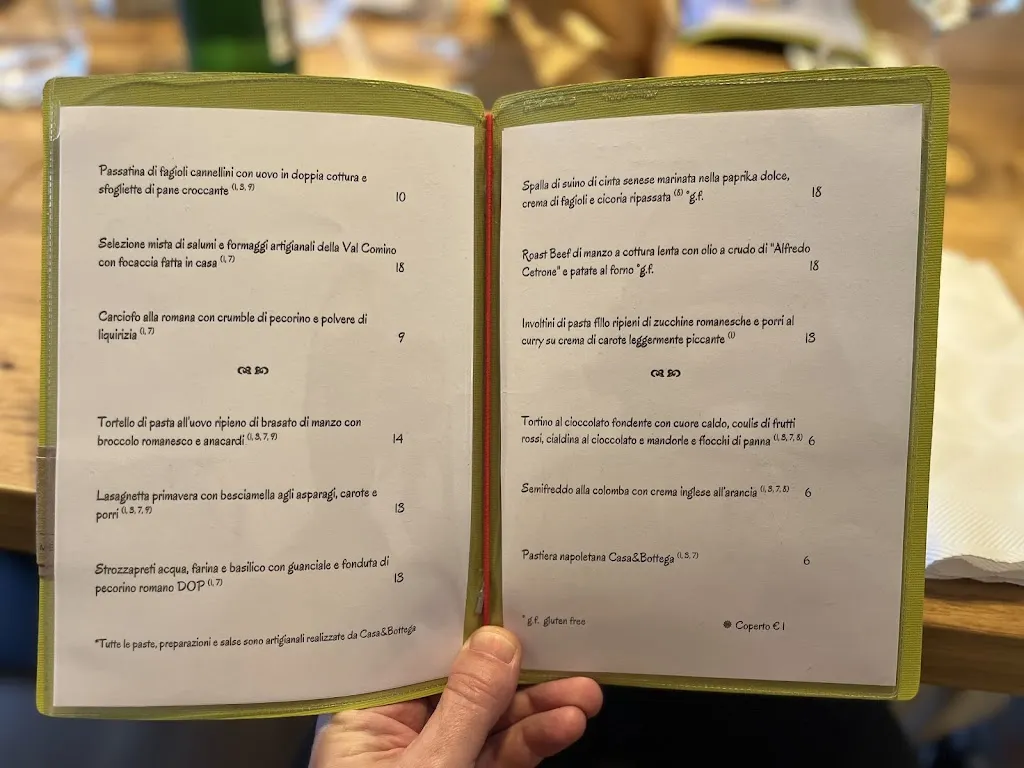 Passatina di fagioli cannellini con uovo in doppia cottura e
sfogliette di pane croccante (1, 3, 9) 10
Selezione mista di salumi e formaggi artigianali della Val Comino
con focaccia fatta in casa (1, 7) 18
Carciofo alla romana con crumble di pecorino e polvere di
liquirizia (1, 7) 9
Tortello di pasta all'uovo ripieno di brasato di manzo con
broccolo romanesco e anacardi (1, 3, 7, 9) 14
Lasagnetta primavera con besciamella agli asparagi, carote e
porri (1, 3, 7, 9) 13
Strozzapreti acqua, farina e basilico con guanciale e fonduta di
pecorino romano DOP (1, 7) 13
*Tutte le paste, preparazioni e salse sono artigianali realizzate da Casa&Bottega
Spalla di suino di cinta senese marinata nella paprika dolce,
crema di fagioli e cicoria ripassata (8) *g.f. 18
Roast Beef di manzo a cottura lenta con olio a crudo di "Alfredo
Cetrone" e patate al forno *g.f. 18
Involtini di pasta fillo ripieni di zucchine romanesche e porri al
curry su crema di carote leggermente piccante (1) 13
Tortino al cioccolato fondente con cuore caldo, coulis di frutti
rossi, cialdina al cioccolato e mandorle e fiocchi di panna (1, 3, 7, 8) 6
Semifreddo alla colomba con crema inglese all'arancia (1, 3, 7, 8) 6
Pastiera napoletana Casa&Bottega (1, 3, 7) 6
* g.f. gluten free
Coperto € 1